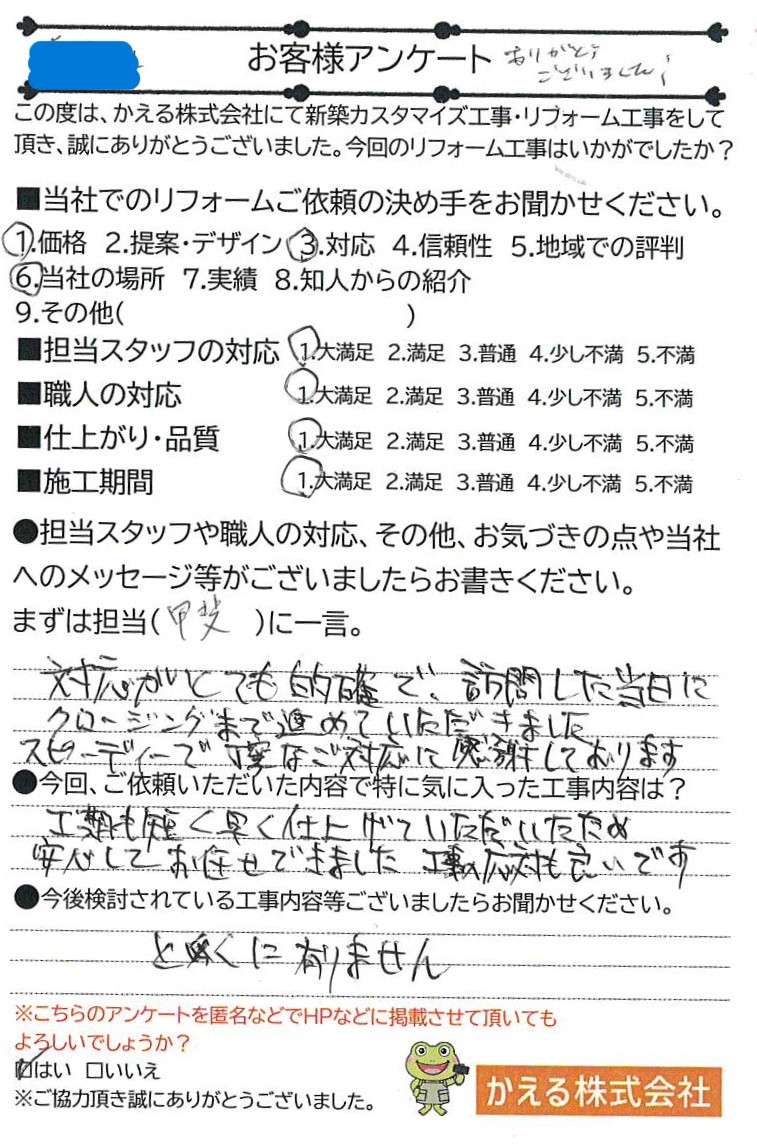 お客様アンケート ありがとう
ございました!
この度は、かえる株式会社にて新築カスタマイズ工事・リフォーム工事をして
頂き、誠にありがとうございました。今回のリフォーム工事はいかがでしたか?
■当社でのリフォームご依頼の決め手をお聞かせください。
1.価格 2.提案・デザイン 3.対応 4.信頼性 5.地域での評判
6.当社の場所 7.実績 8.知人からの紹介
9.その他( )
■担当スタッフの対応 1.大満足 2.満足 3.普通 4.少し不満 5.不満
■職人の対応 1.大満足 2.満足 3.普通 4.少し不満 5.不満
■仕上がり・品質 1.大満足 2.満足 3.普通 4.少し不満 5.不満
■施工期間 1.大満足 2.満足 3.普通 4.少し不満 5.不満
●担当スタッフや職人の対応、その他、お気づきの点や当社
へのメッセージ等がございましたらお書きください。
まずは担当(甲斐)に一言。
対応がとても的確で、訪問した当日に
クロージングまで進めていただきました
スピーディーで丁寧なご対応に感謝しております
●今回、ご依頼いただいた内容で特に気に入った工事内容は?
工期も短く早く仕上げていただいたため
安心してお任せできました 工事の応対も良いです
●今後検討されている工事内容等ございましたらお聞かせください。
とくに有りません
※こちらのアンケートを匿名などでHPなどに掲載させて頂いても
よろしいでしょうか?
☑はい □いいえ
※ご協力頂き誠にありがとうございました。
かえる株式会社